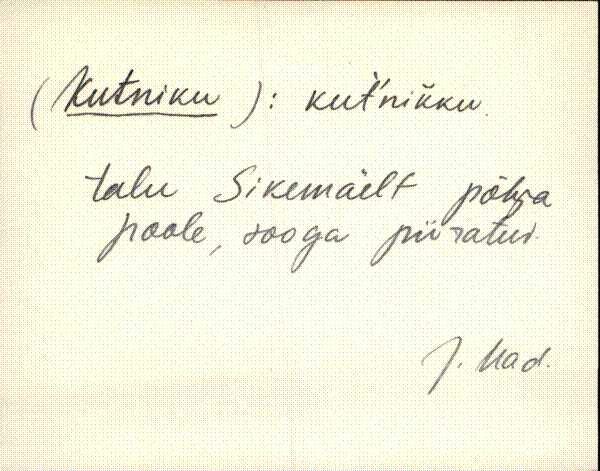 (Kutniku): kut́'nik̆ku.
talu Sikemäelt põhja
poole, sooga piiratud.
J. Mad.